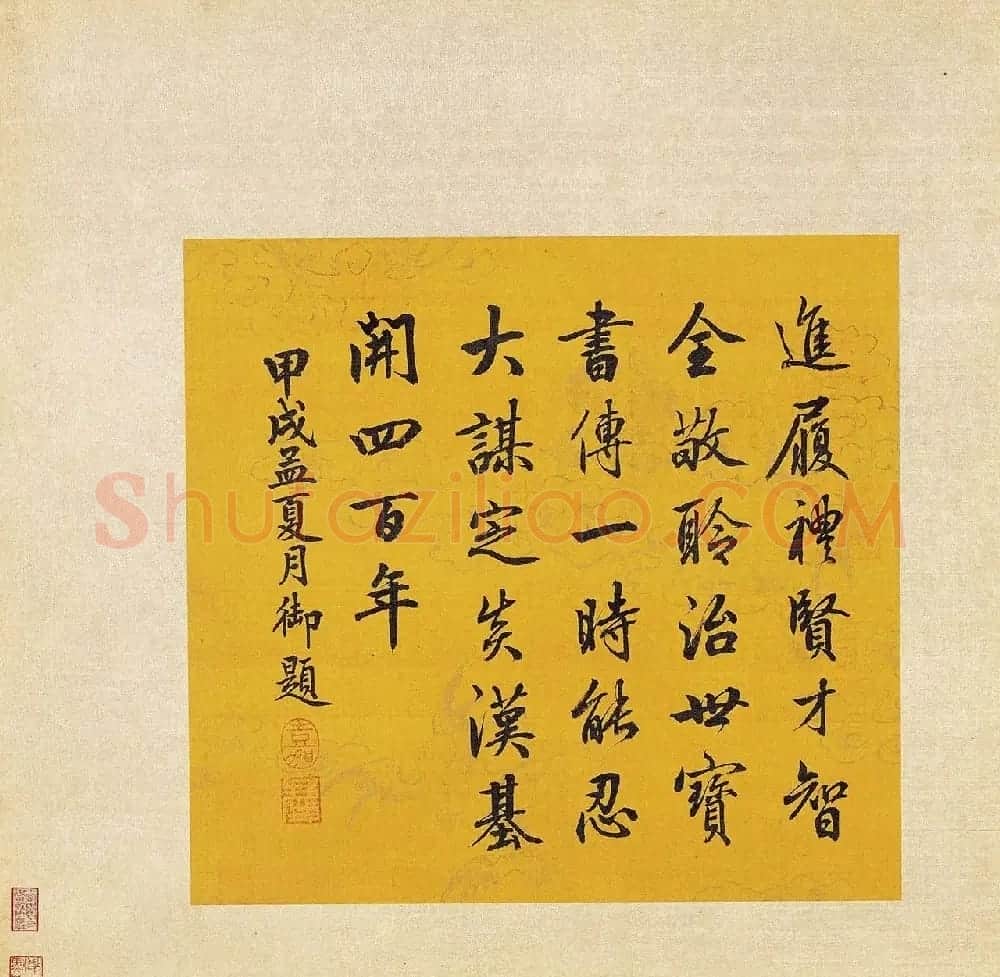 進履禮賢才智
全敬聆治世寶
書傳一時能忍
大謀定矣漢基
開四百年
甲戌孟夏月御題
Shufaziliao.COM